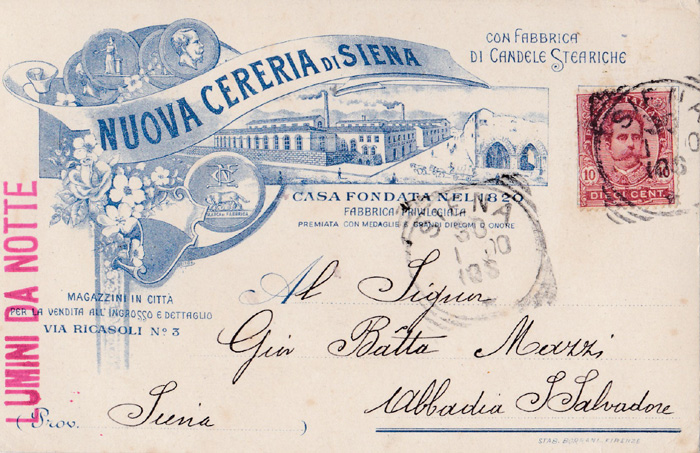 CON FABBRICA
DI CANDELE STEARICHE
NUOVA CERERIA DI SIENA
10
DIECI CENT.
CASA FONDATA NEL 1820
FABBRICA PRIVILEGIATA
PREMIATA CON MEDAGLIE E GRANDI DIPLOMI D'ONORE
SIENA
MAGAZZINI IN CITTÀ
PER LA VENDITA ALL'INGROSSO E DETTAGLIO
VIA RICASOLI No 3
LUMINI DA NOTTE
Al Signor
Giov Batta Mazzi
Abbadia S. Salvadore
(Prov. Siena )